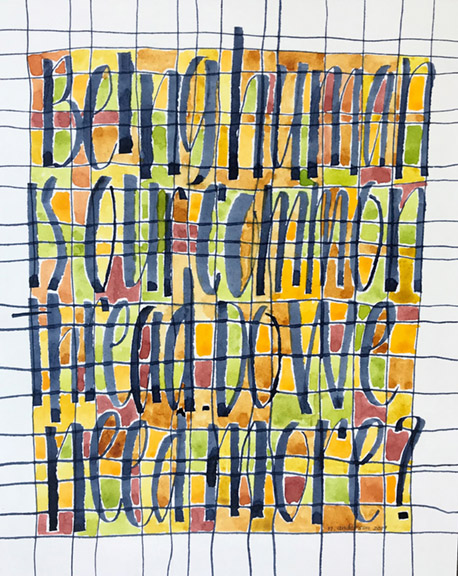 Being human
is our common
thread. Do we
need more?